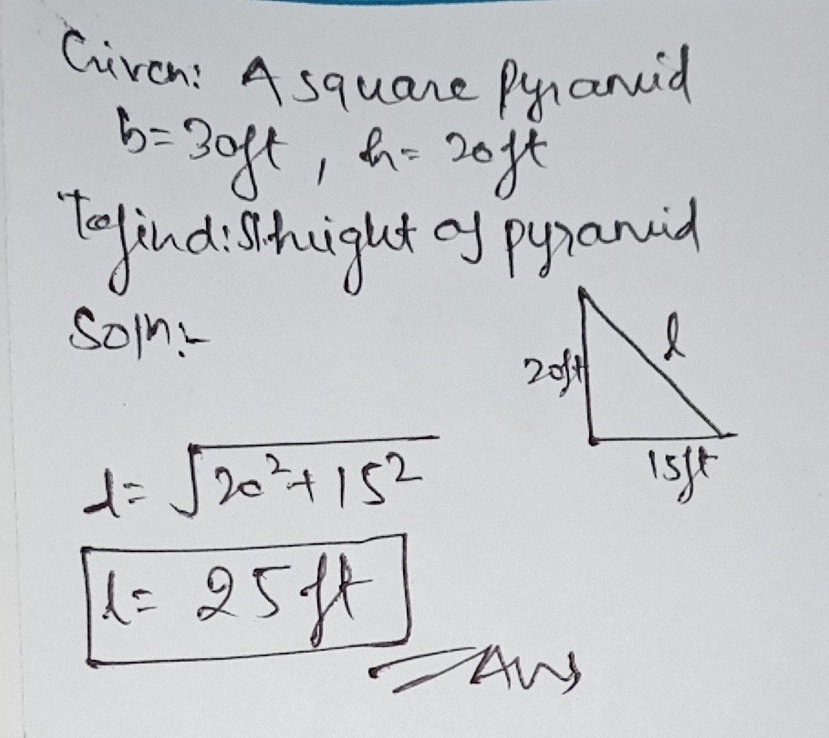 Given: A square Pyramid
b=30ft, h= 20ft
To find: Sl. height of pyramid
Soln:-
20ft
l
15ft
l= √20²+15²
l= 25ft
Ans